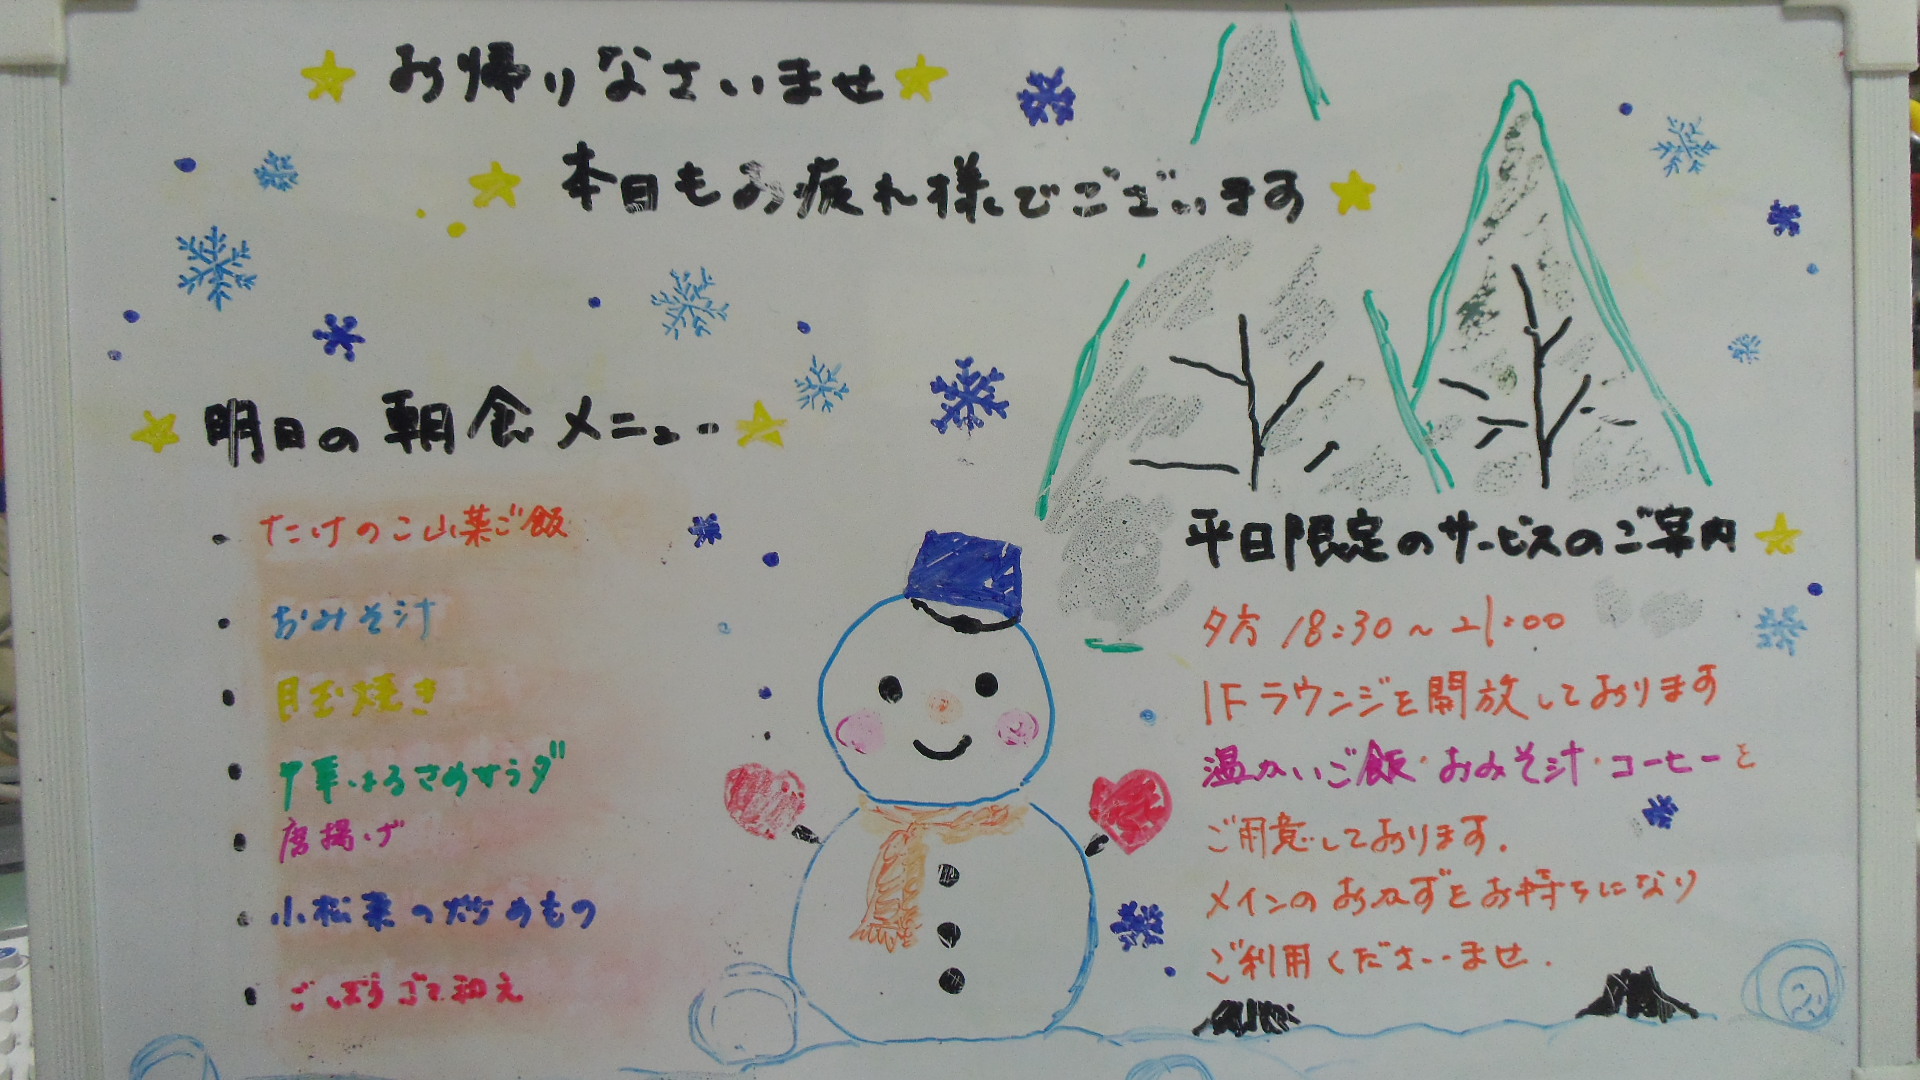 お帰りなさいませ
本日もお疲れ様でございます
明日の朝食メニュー
たけのこ山菜ご飯
おみそ汁
目玉焼き
中華はるさめサラダ
唐揚げ
小松菜の炒めもの
ごぼうごま和え
平日限定のサービスのご案内
夕方 18:30～21:00
1Fラウンジを開放しております
温かいご飯・おみそ汁・コーヒーと
ご用意しております.
メインのおかずをお持ちになり
ご利用くださいませ.